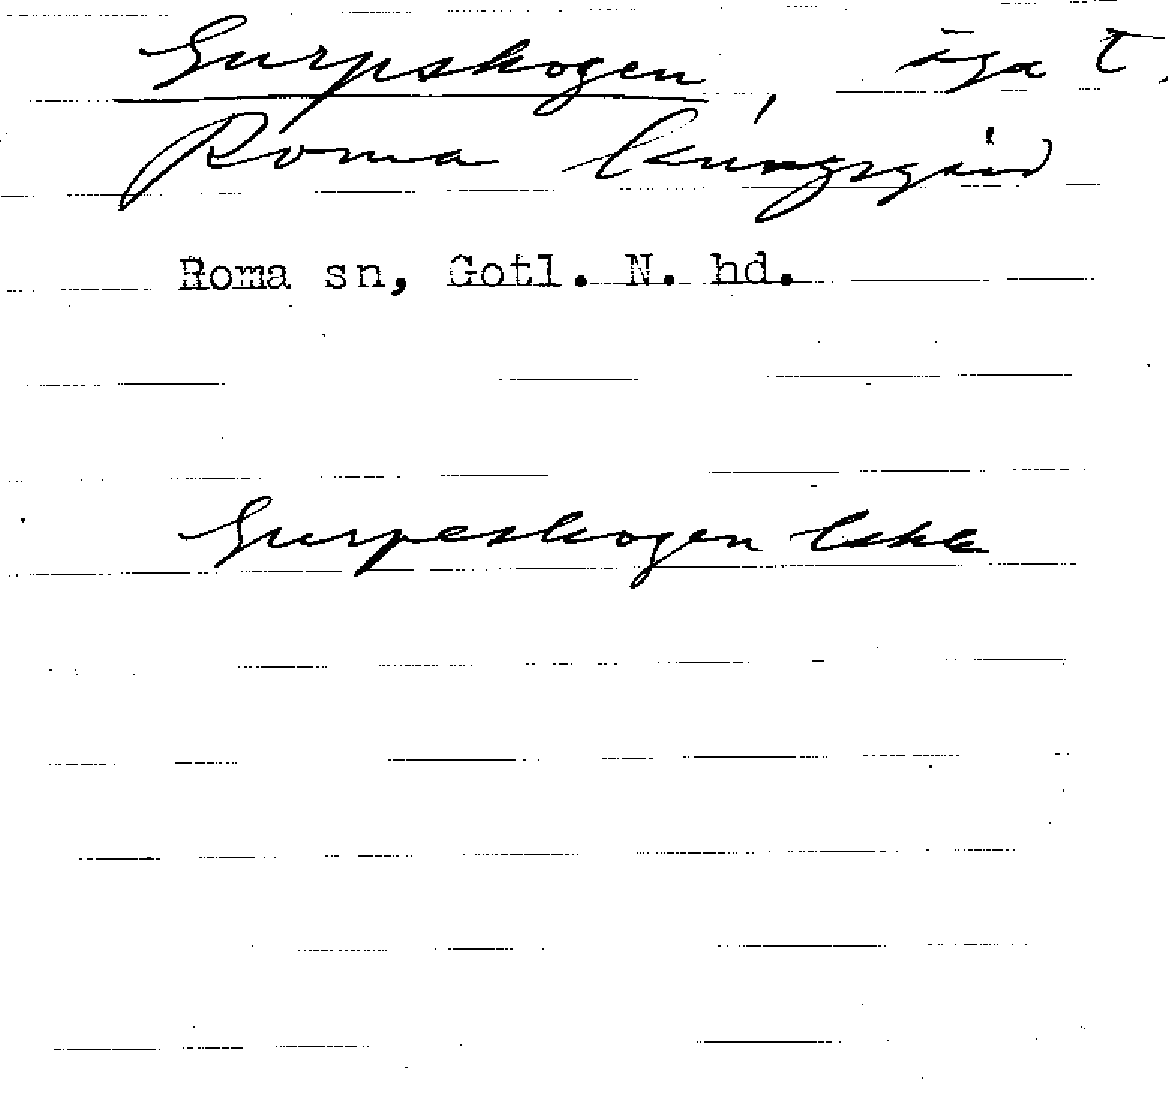 Gurpskogen, äga t.
Roma kungsgård
Roma sn, Gotl. N. hd.
Gurpeskogen Ekk